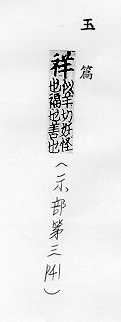 玉篇
祥
似羊切妖怪
也福也善也
(示部第三 P41)